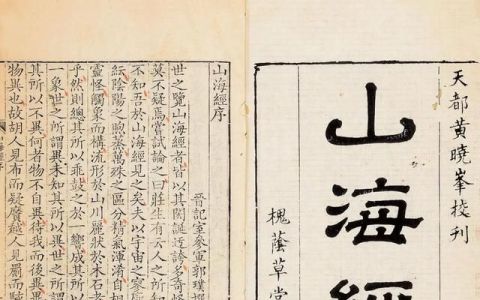 天都黄曉峯校刊
山海經
槐蔭草堂
山海經序
晉記室參軍郭璞撰
世之覽山海經者皆以其閎誕迂誇多奇怪
莫不疑焉嘗試論之曰莊生有云人之所知
不知吾於山海經見之矣夫以宇宙之寥
紜陰陽之煦蒸萬殊之區分精氣渾淆自相
靈怪觸象而構流形於山川麗狀於木石者
乎然則總其所以乖鼓之於一響成其所以
一象世之所謂異未知其所以異世之所謂
其所以不異何者物不自異待我而後異
物異也故胡人見布而疑黂越人見罽而駭